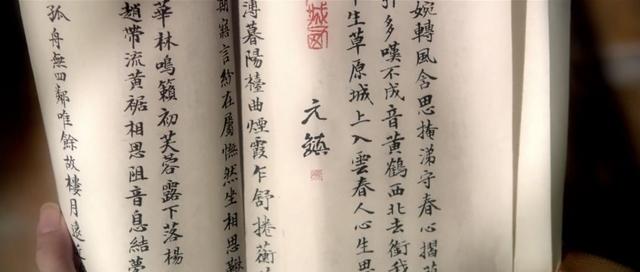 婉轉風含思掩涕守春心摺
引多嘆不成音黃鶴西北去銜我
生草原城上入雲春人心生思
元鎮
薄暮陽檯曲煙霞乍舒捲蘅
寤言紛在屬憮然坐相思
華林鳴籟初芙蓉露下落楊
趙帶流黃裾相思阻音息結夢
孤舟無四鄰唯餘故樓月遠